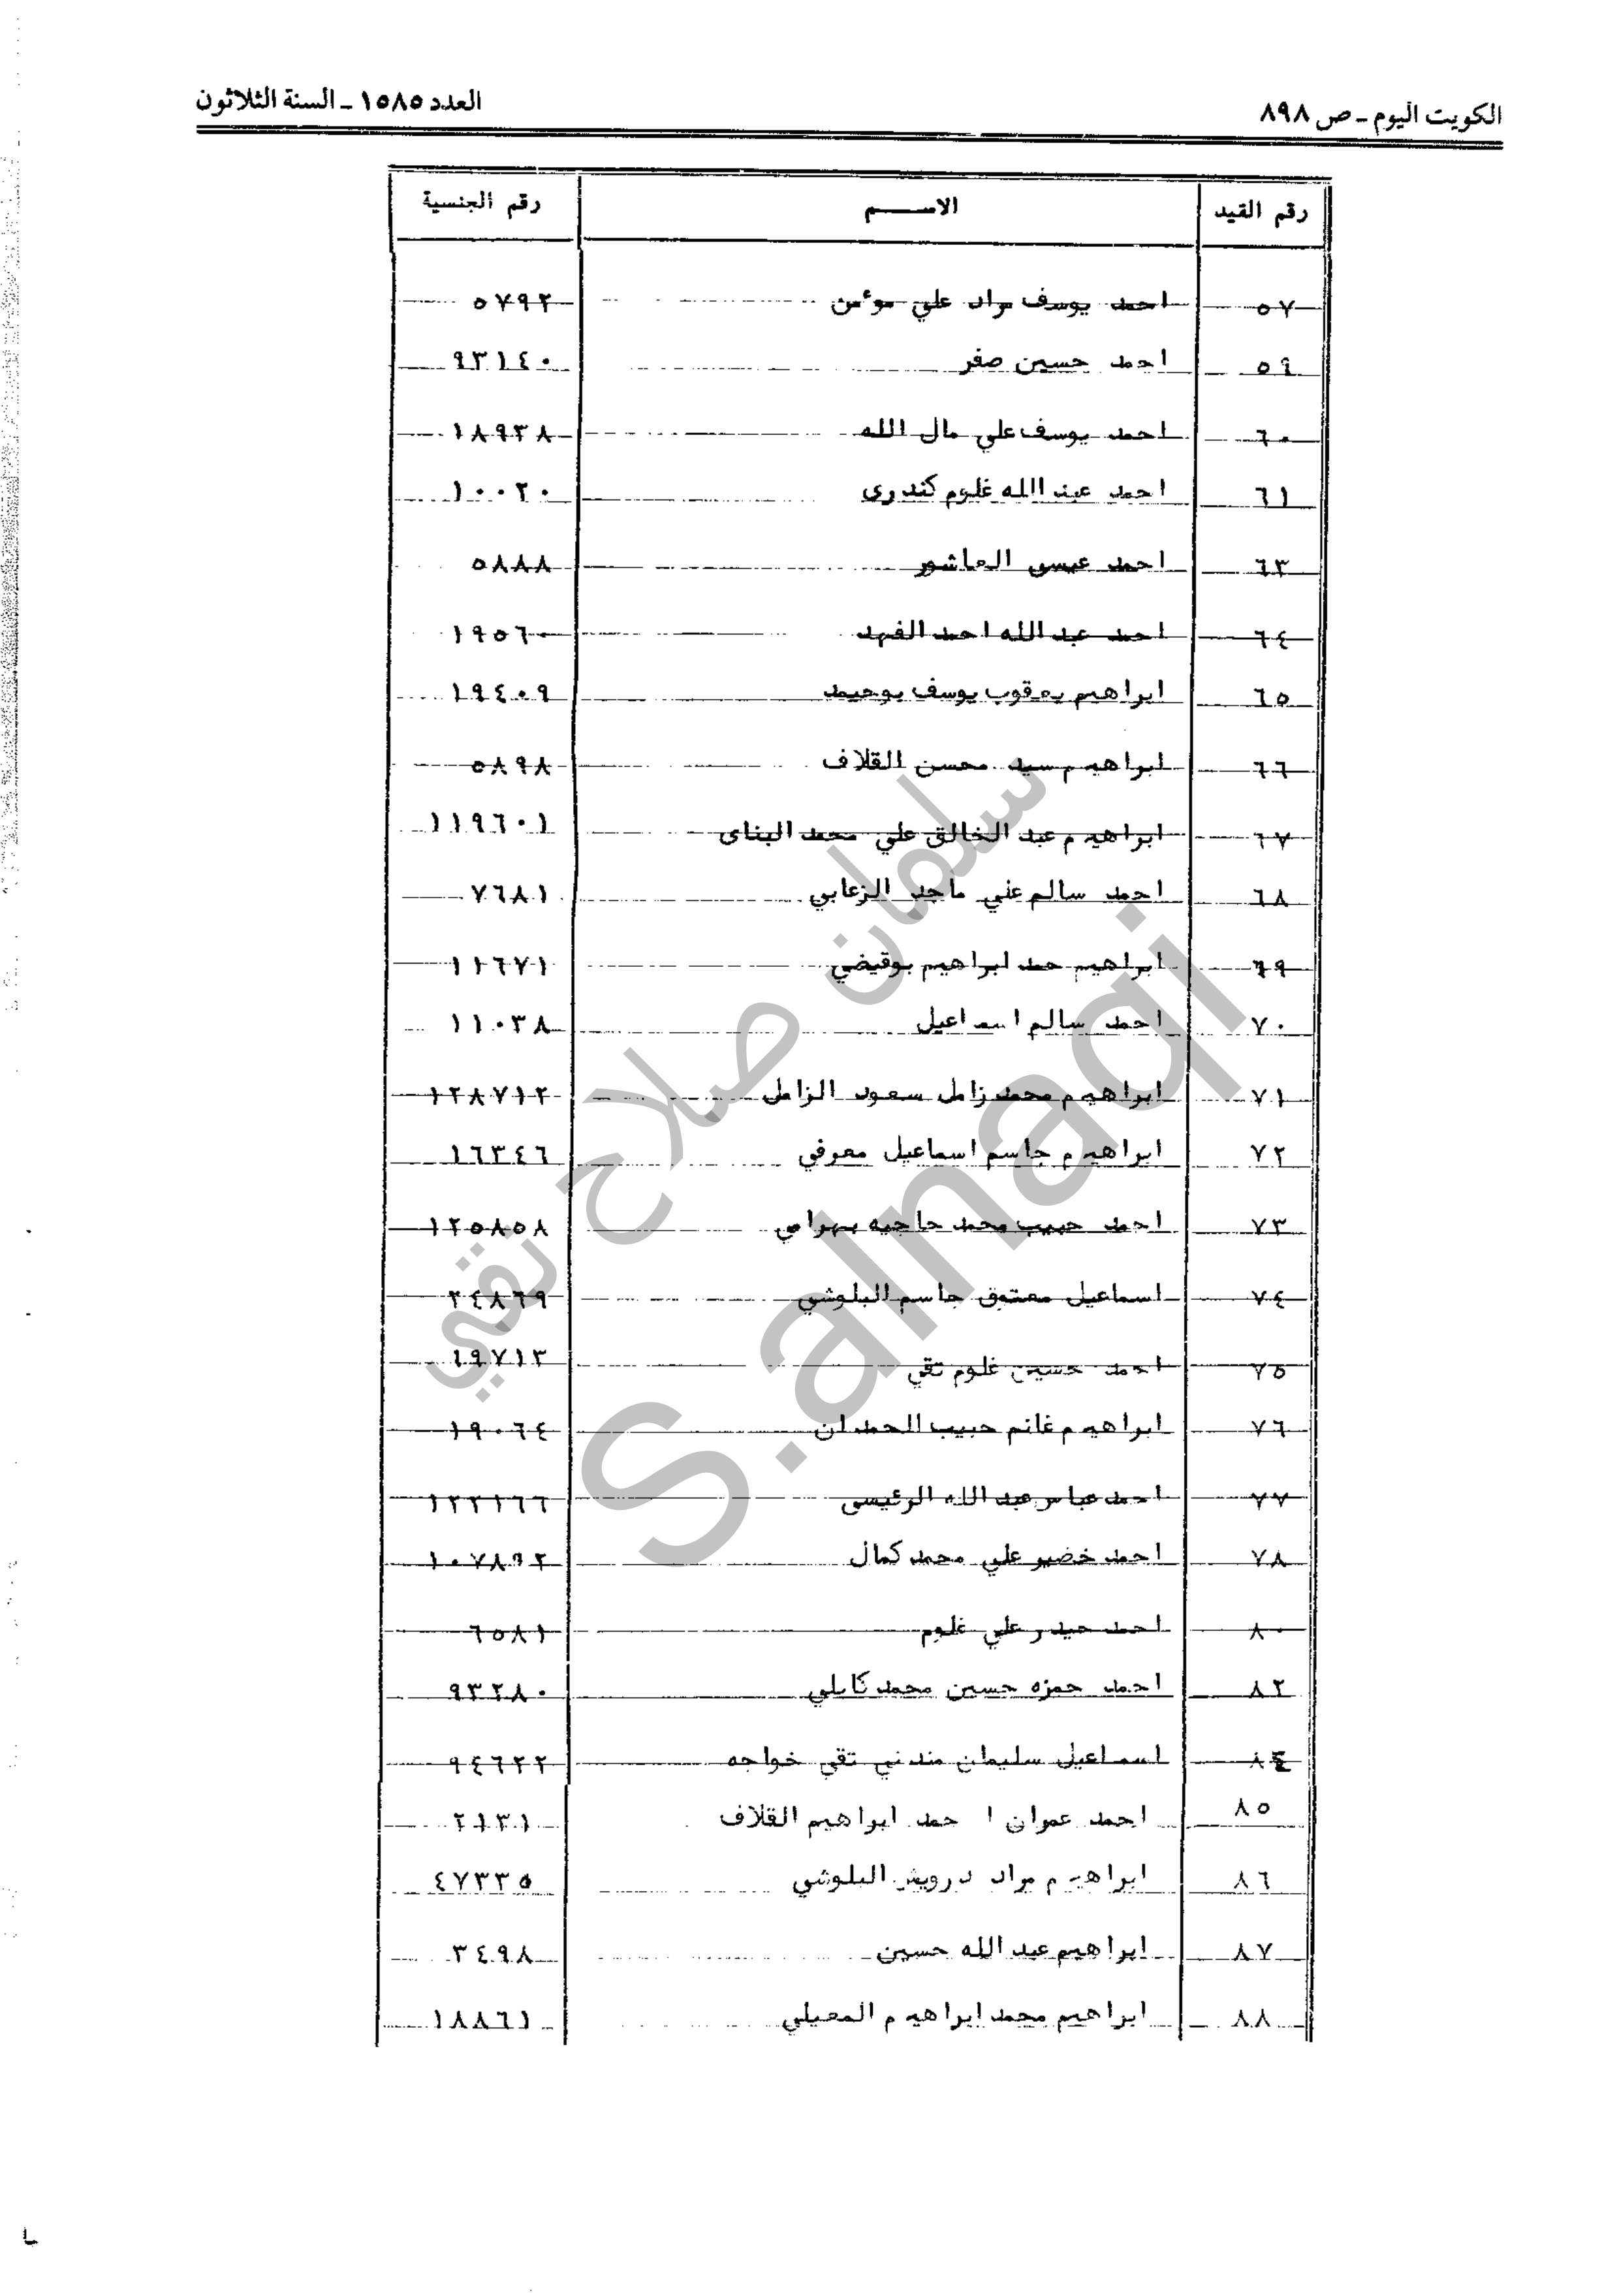 الكويت اليوم ـ ص ٨٩٨
العدد ١٥٨٥ ـ السنة الثلاثون
رقم القيد الاســـم رقم الجنسية
٥٧ احمد يوسف مراد علي موءمن ٥٧٩٢
٥٩ احمد حسين صفر ٩٣١٤٠
٦٠ احمد يوسف علي مال الله ١٨٩٣٨
٦١ احمد عبد الله غلوم كندرى ١٠٠٢٠
٦٣ احمد عيسى العاشور ٥٨٨٨
٦٤ احمد عبد الله احمد الفهد ١٩٥٦٠
٦٥ ابراهيم يعقوب يوسف بوحيمد ١٩٤٠٩
٦٦ ابراهيم سيد محسن القلاف ٥٨٩٨
٦٧ ابراهيم عبد الخالق علي محمد البناى ١١٩٦٠١
٦٨ احمد سالم علي ماجد الزعابي ٧٦٨١
٦٩ ابراهيم حمد ابراهيم بوقيضي ١١٦٧١
٧٠ احمد سالم اسماعيل ١١٠٣٨
٧١ ابراهيم محمد زامل سعود الزامل ١٢٨٧١٢
٧٢ ابراهيم جاسم اسماعيل معرفي ١٦٣٤٦
٧٣ احمد حبيب محمد حاجيه بهرامي ١٢٥٨٥٨
٧٤ اسماعيل معتوق جاسم البلوشي ٢٤٨٦٩
٧٥ احمد حسين غلوم تقي ١٩٧١٣
٧٦ ابراهيم غانم حبيب الحمدان ١٩٠٦٤
٧٧ احمد عباس عبد الله الرئيسى ١٢٢١٦٦
٧٨ احمد خضير علي محمد كمال ١٠٧٨٩٢
٨٠ احمد حيدر علي غلوم ٦٥٨١
٨٢ احمد حمزه حسين محمد كابلي ٩٣٢٨٠
٨٤ اسماعيل سليمان مندني تقي خواجه ٩٤٦٢٢
٨٥ احمد عمران احمد ابراهيم القلاف ٢١٣١
٨٦ ابراهيم مراد درويش البلوشي ٤٧٣٣٥
٨٧ ابراهيم عبد الله حسين ٣٤٩٨
٨٨ ابراهيم محمد ابراهيم المعيلي ١٨٨٦١
سلمان صلاح تقي
S.alnaqi